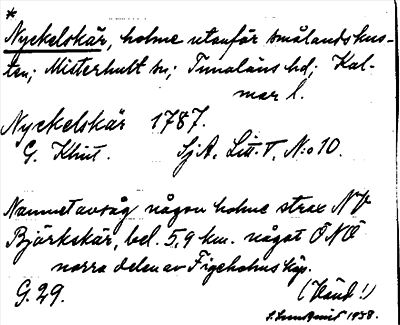 *
Nyckelskär, holme utanför smålandskus-
ten; Misterhult sn; Tunaläns hd; Kal-
mar l.
Nyckelskär 1787.
G. Klint. SjA. Litt. T, N:o 10.
Namnet avsåg någon holme strax NV
Björkskär, bel. 5,9 km. något ÖNÖ
norra delen av Figeholms köp.
G. 29. (Känd!)
1938.